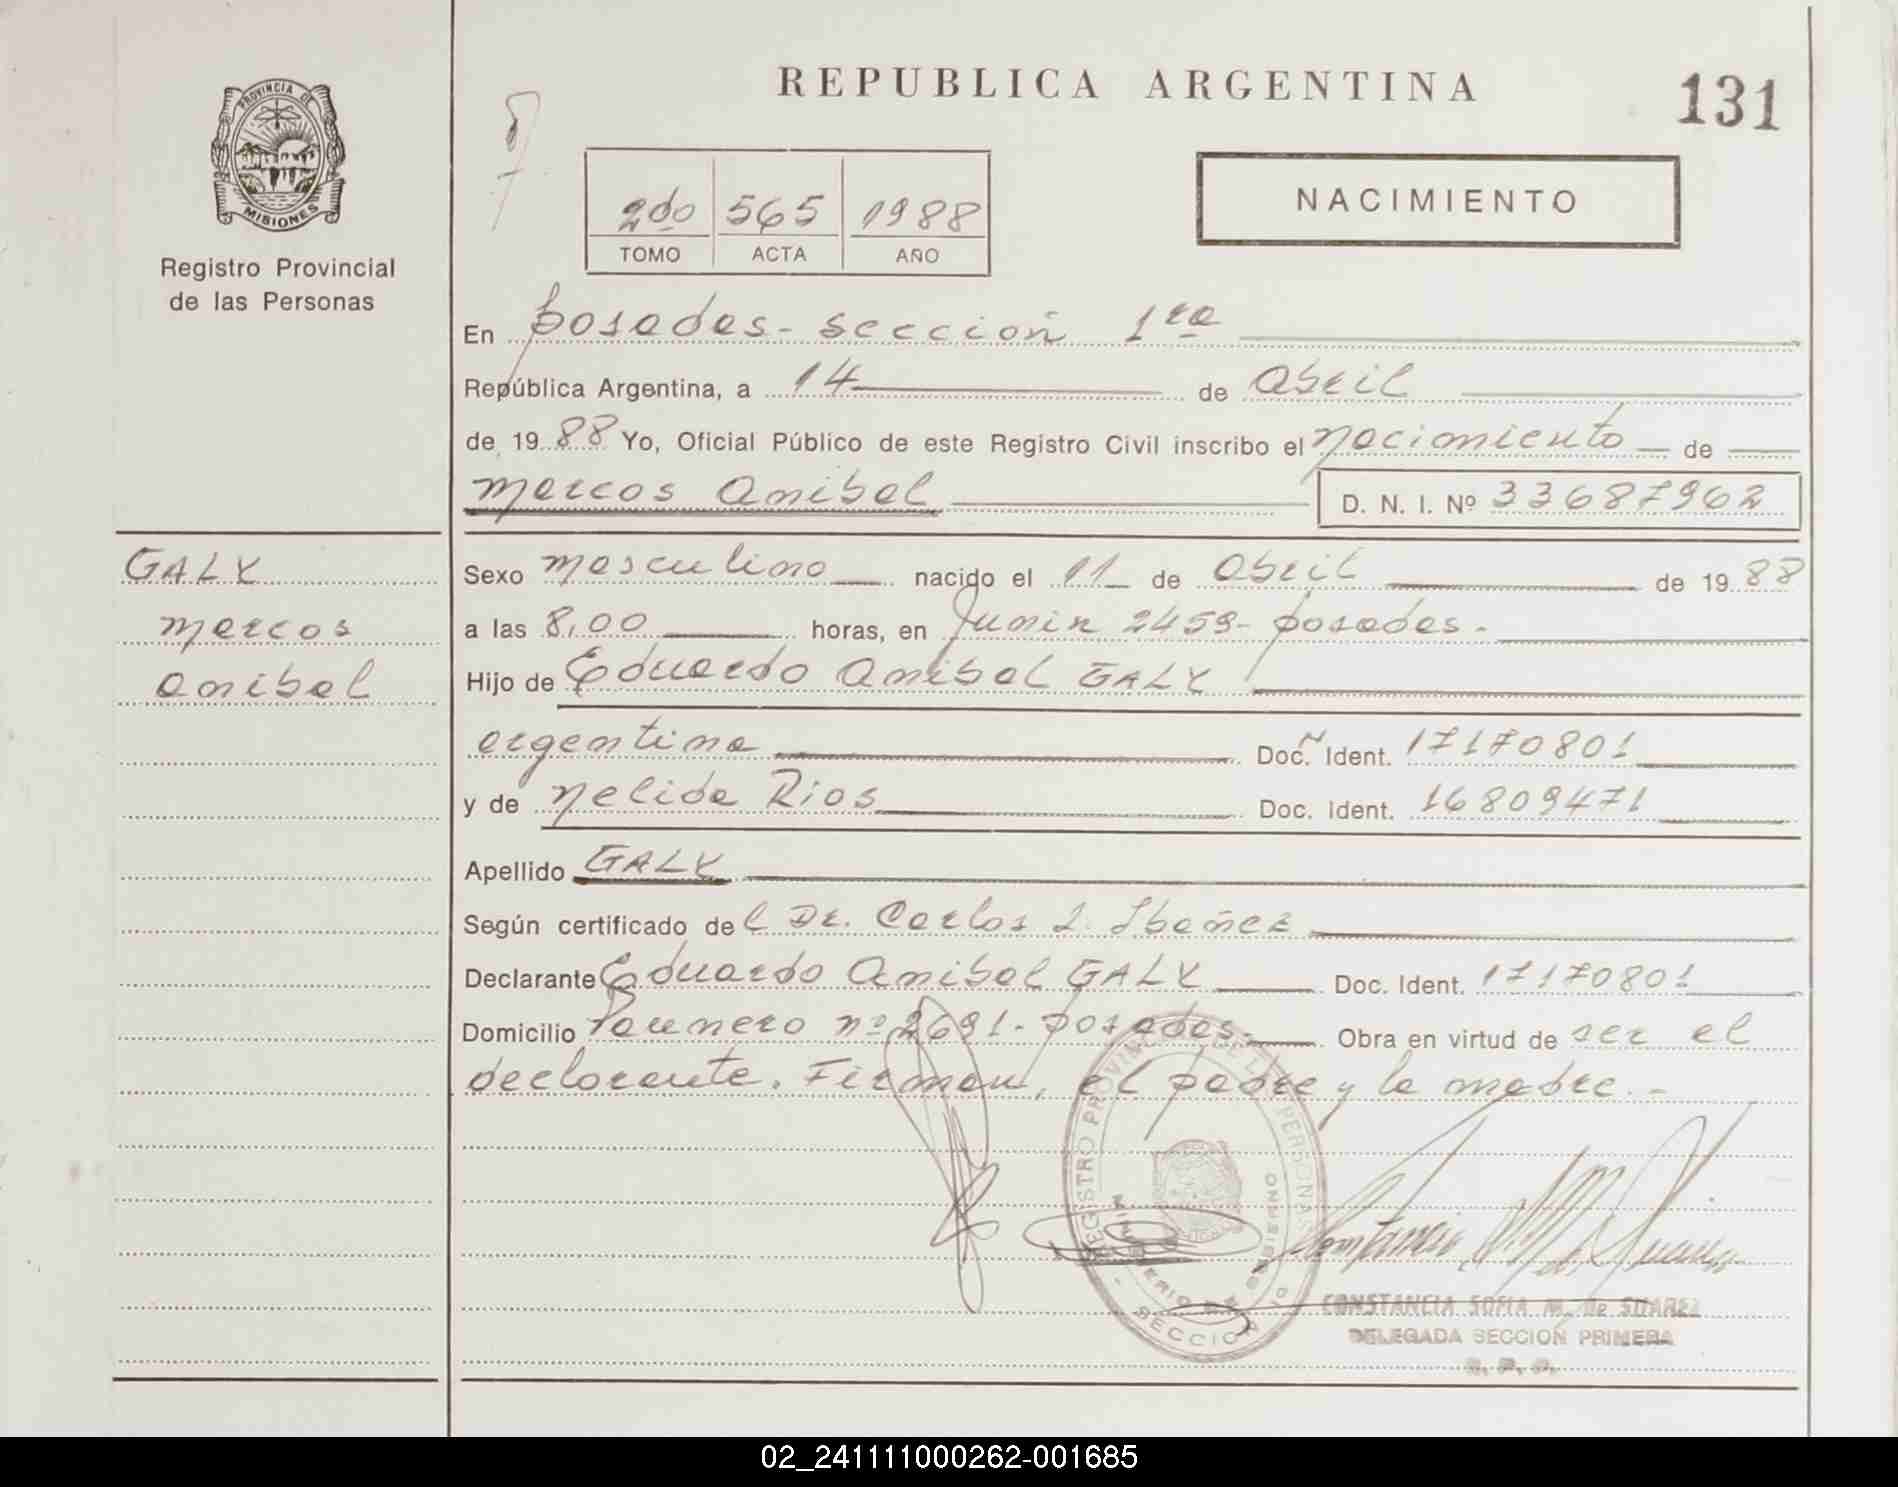 REPUBLICA ARGENTINA
131
PROVINCIA DE
MISIONES
Registro Provincial
de las Personas
2do 565 1988
TOMO ACTA AÑO
NACIMIENTO
En posadas - sección 1ra
República Argentina, a 14 de abril
de 1988 Yo, Oficial Público de este Registro Civil inscribo el nacimiento de
marcos anibal D. N. I. Nº 33687962
GALY
marcos
anibal
Sexo masculino nacido el 11 de abril de 1988
a las 8,00 horas, en Junin 2459 - posadas -
Hijo de Eduardo anibal GALY
argentina Doc. Ident. 17170801
y de nelida Rios Doc. Ident. 16809471
Apellido GALY
Según certificado del Dr. Carlos I. Ibañez
Declarante Eduardo anibal GALY Doc. Ident. 17170801
Domicilio Paunero nº 2691 - posadas - Obra en virtud de ser el
declarante. Firman, el padre y la madre. -
REGISTRO PROVINCIAL DE LAS PERSONAS
SECCION
CONSTANCIA SOFIA M. de SUAREZ
DELEGADA SECCION PRIMERA
02_241111000262-001685